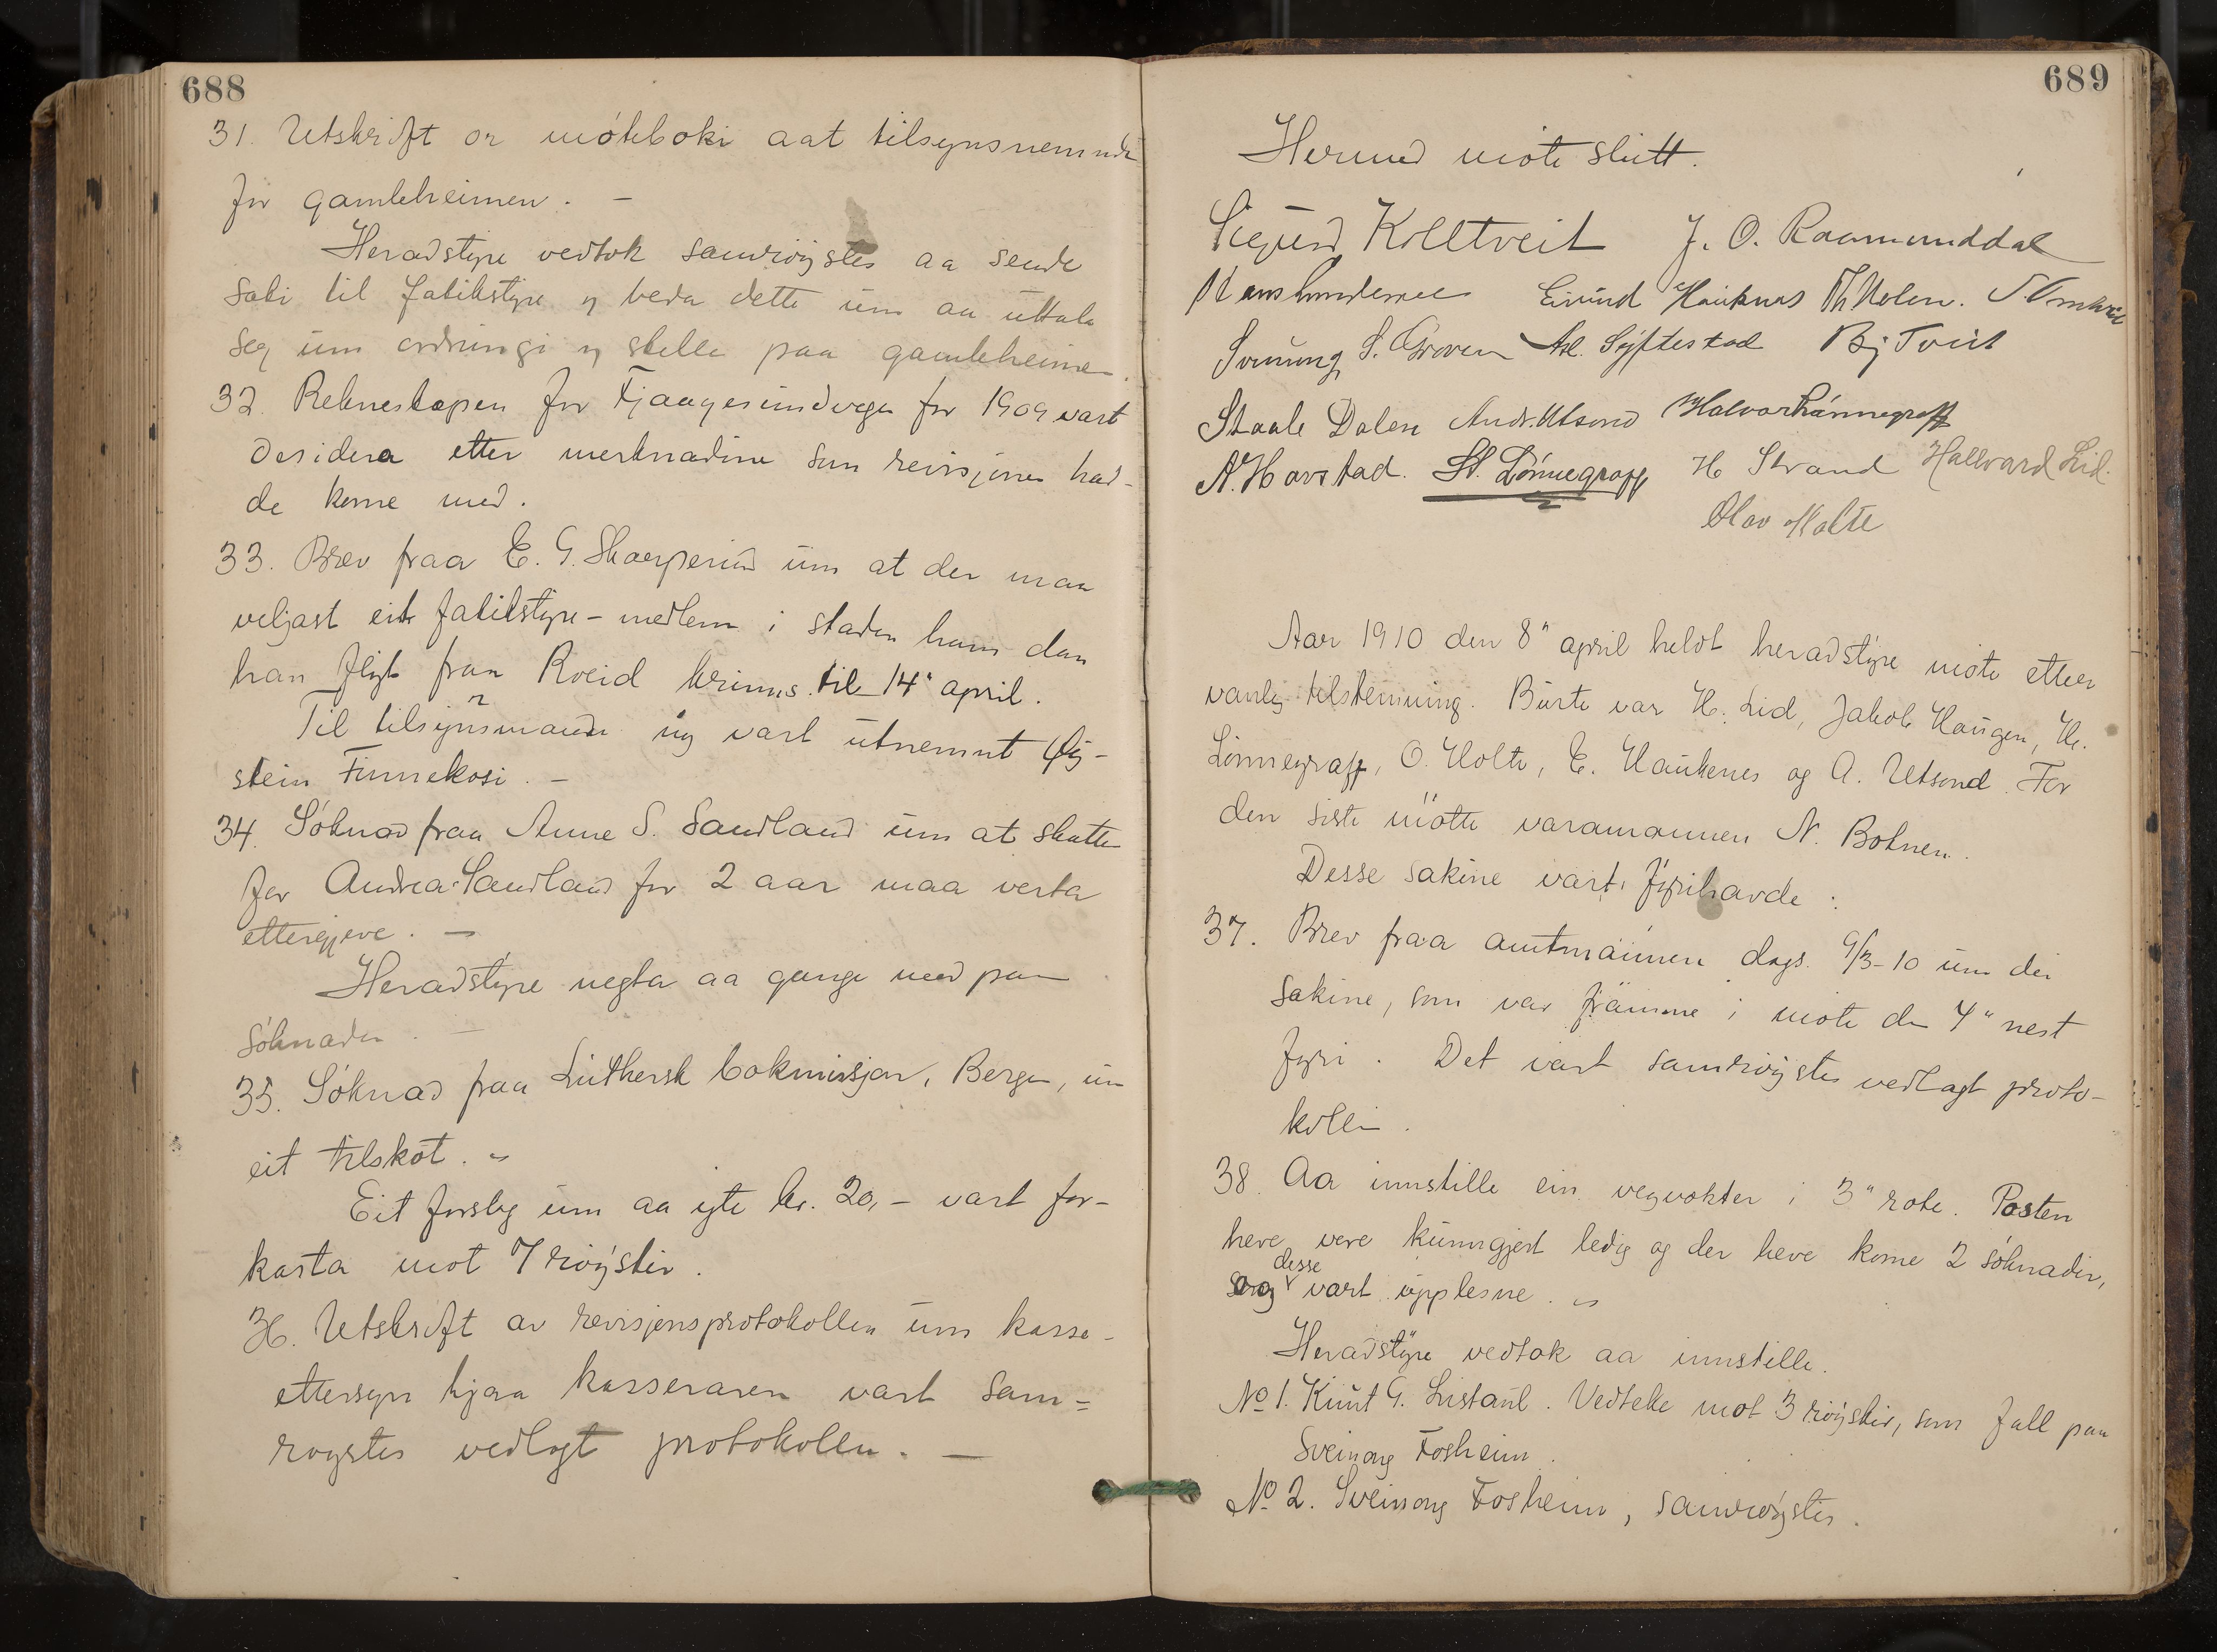 688
31. Utskrift or möteboki aat tilsynsnemndi
for gamleheimen. –
Heradstyre vedtok samröystes aa sende
saki til fatikstyre og beda dette um aa uttala
seg um ordningi og stelle paa gamleheimen.
32. Rekneskapen for Fjaagesundvegen for 1909 vart
desidera etter merknadine som revisjonen had-
de kome med.
33. Brev fraa E. G. Skarperud um at der maa
veljast eit fatikstyre-medlem i staden hans daa
han flyt fraa Roeid krins til 14" april.
Til tilsynsmann og vart utnemnt Öy-
stein Finnekosi. –
34. Söknad fraa Anne S. Sandland um at skatten
for Andrea Sandland for 2 aar maa verta
ettergjeve. –
Heradstyre negta aa gange med paa
söknaden. –
35. Söknad fraa Luthersk bokmissjon, Bergen, um
eit tilskot. –
Eit forslag um aa yte kr. 20,– vart for-
kasta mot 7 röyster.
36. Utskrift av revisjonsprotokollen um kasse-
ettersyn hjaa kasseraren vart sam=
roystes vedlagt protokollen. –
689
Hermed möte slutt.
Sigurd Kolltveit J. O. Raamunddal
Eivind Hauknes Th Molen.
Sveinung S. Groven Asl. Syftestad Bj Tveit
Staale Dalen Andr. Utsond Halvor Lönnegraff
N. Harstad. St. Lönnegraff H Strand Hallvard Lid.
Olav Holte
Aar 1910 den 8" april heldt heradstyre möte etter
vanleg tilstemning. Burte var H. Lid, Jakob Haugen, H.
Lönnegraff, O. Holte, E. Haukenes og A. Utsond. For
den siste mötte varamannen N. Botnen.
Desse sakine vart fyrihavde:
37. Brev fraa amtmannen dags. 9/3-10 um dei
sakine, som var framme i möte den 4" nest
fyri. Det vart samröystes vedlagt proto-
kollen.
38. Aa innstille ein vegvokter i 3" rote. Posten
heve vere kunngjort ledig og der heve kome 2 söknader,
og desse vart upplesne. –
Heradstyre vedtok aa innstille.
No 1. Knut G. Listaul. Vedteke mot 3 röyster, som fall paa
Sveinong Fosheim.
No 2. Sveinong Fosheim, samröystes.